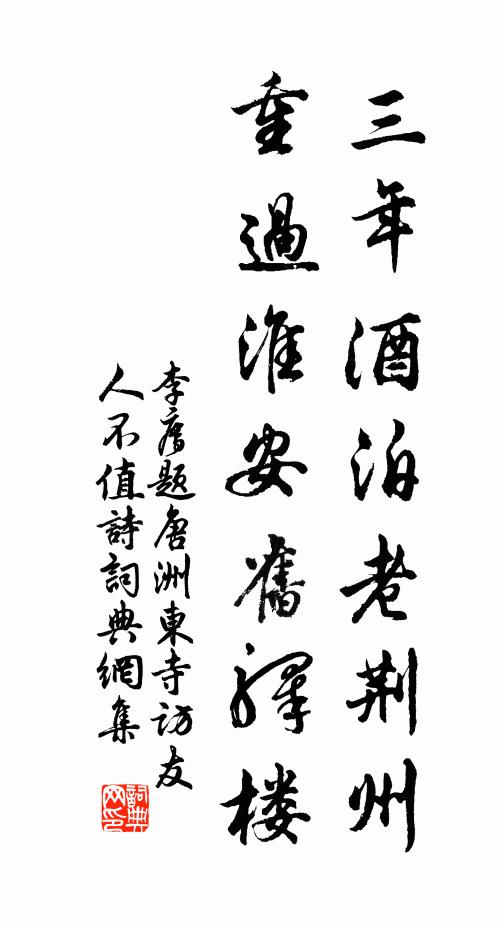 三年酒泊老荆州
重過淮安舊驛楼
李题唐洲東寺访友
人不值詩詞典網集
詞典
网印